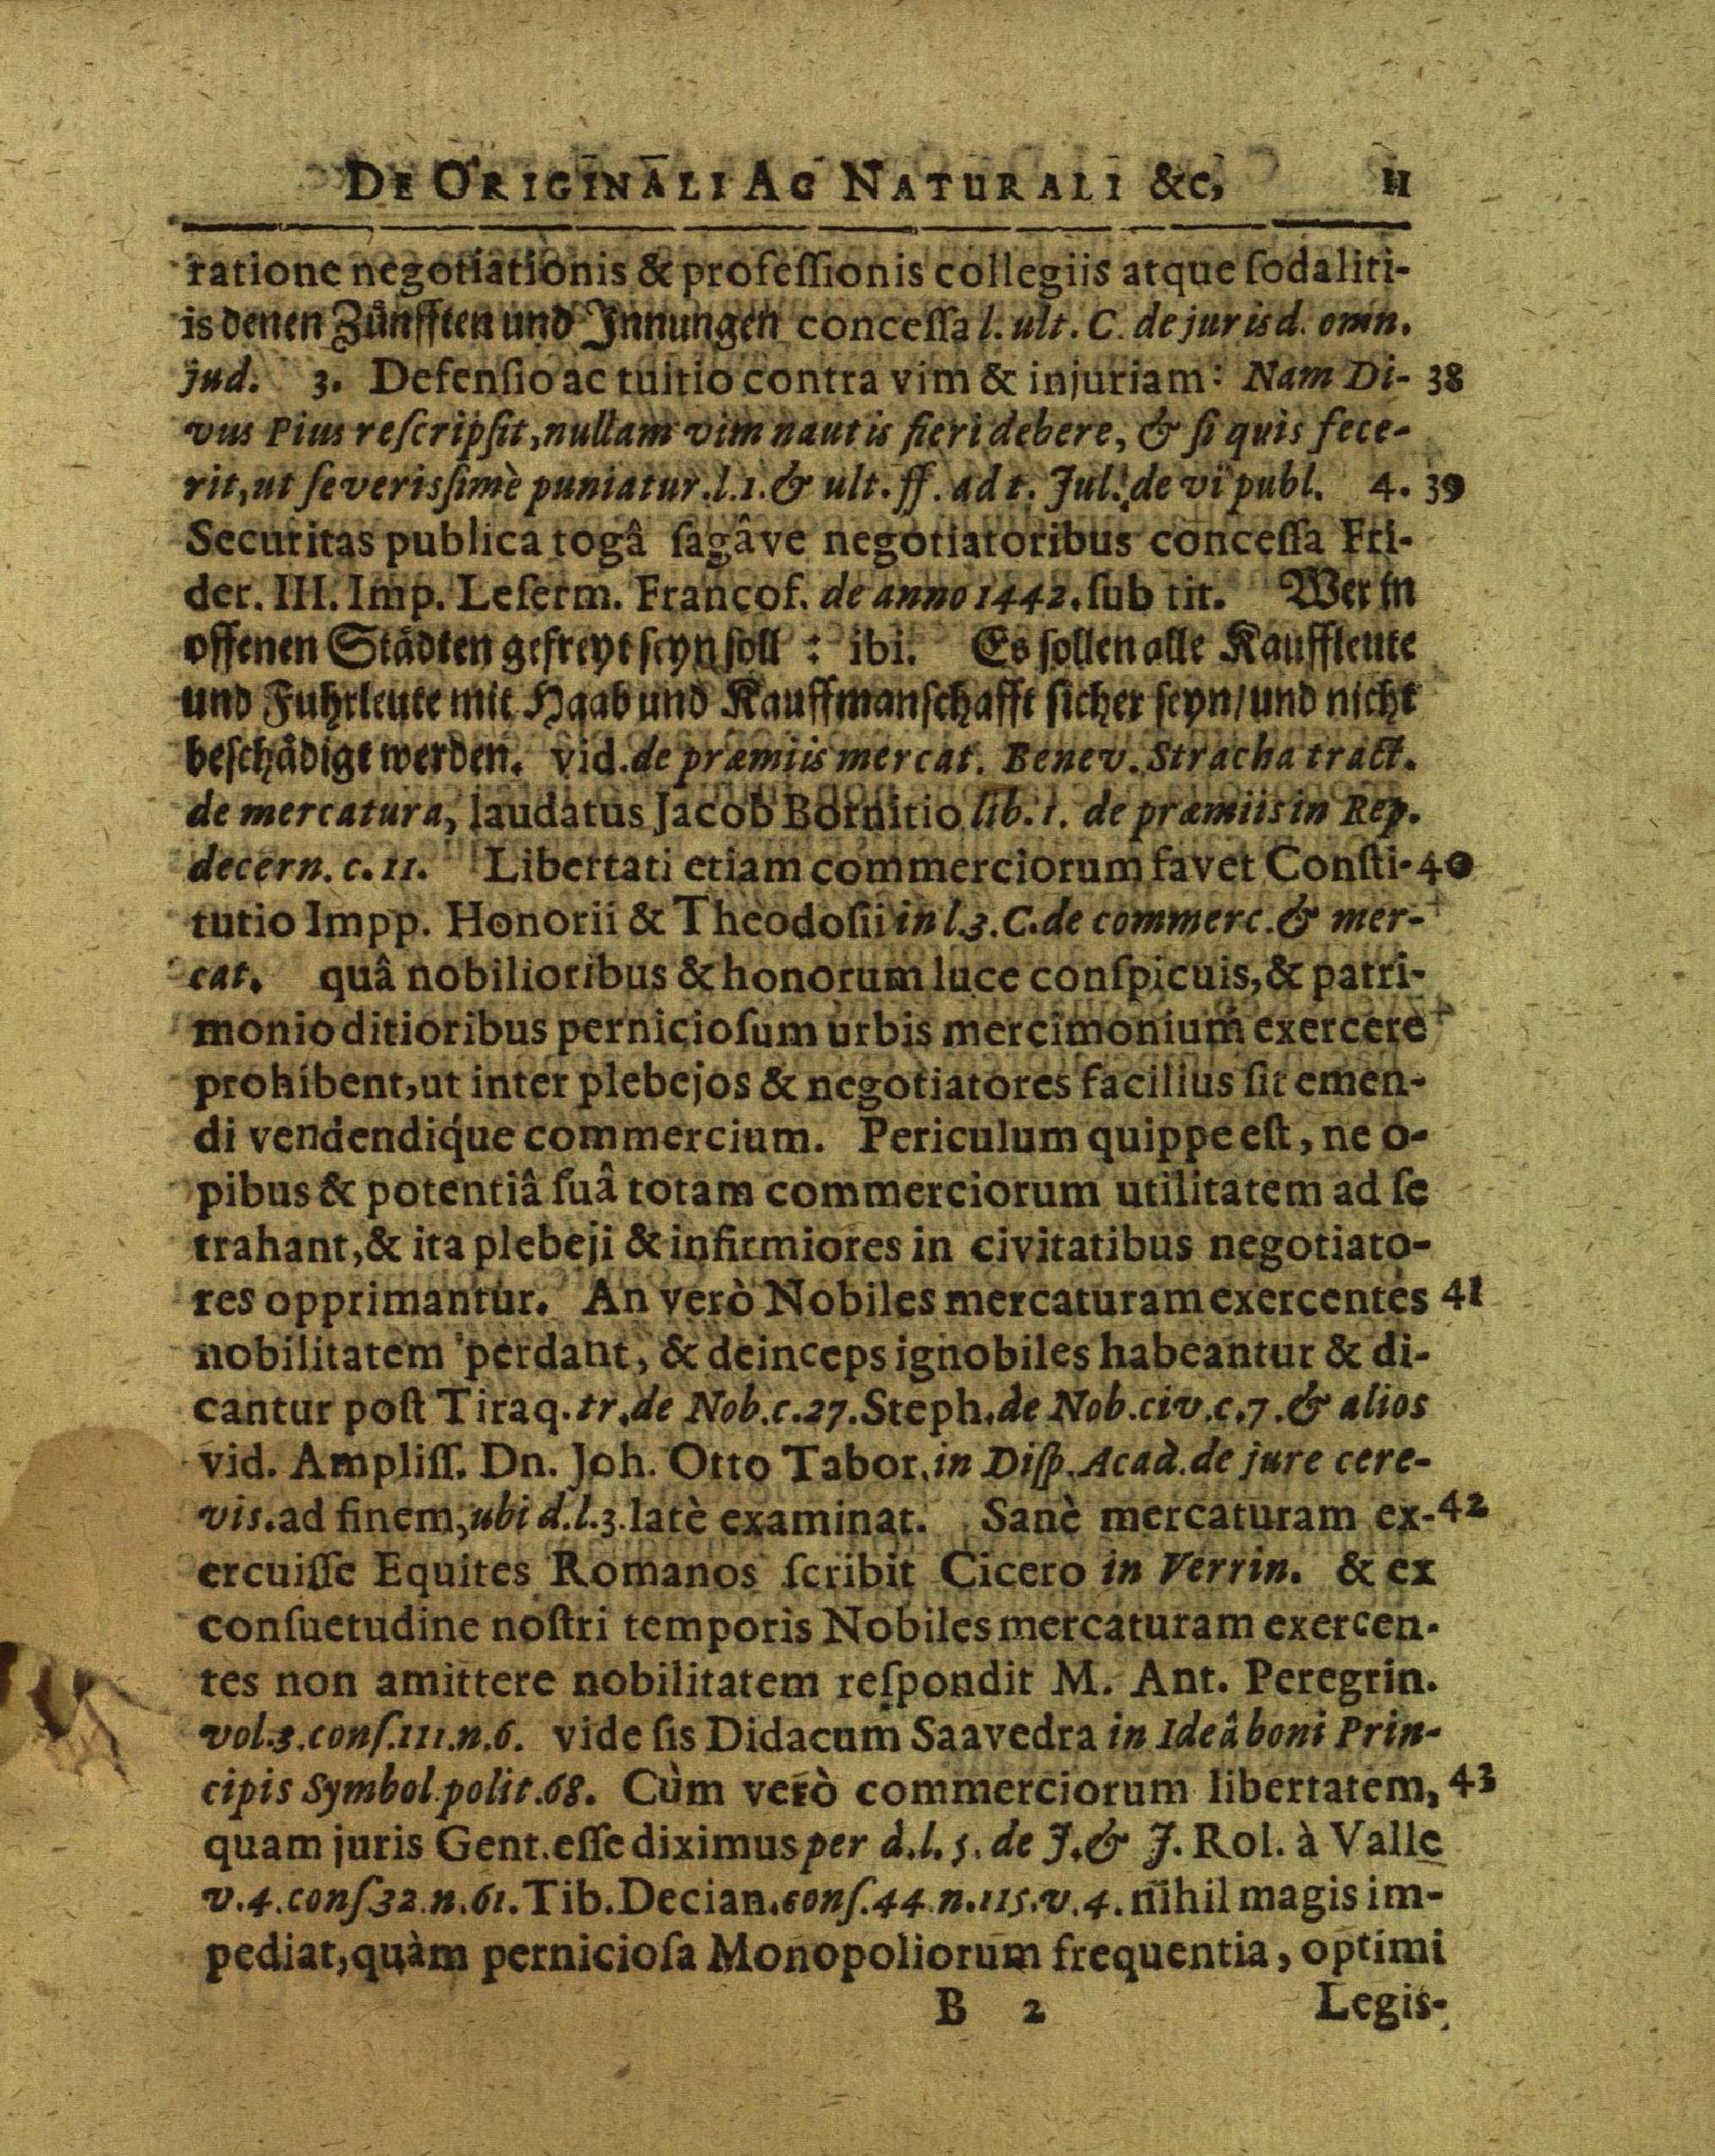 DE ORIGINALI AC NATURALI &c, 11
ratione negotiationis & profeſſionis collegiis atque ſodaliti-
is denen Zůnfften und Jnnungen conceſſa l. ult. C. de jurisd. omn.
jud. 3. Defenſio ac tuitio contra vim & injuriam: Nam Di- 38
vus Pius reſcripſit, nullam vim nautis fieri debere, & ſi quis fece-
rit, ut ſeverisſimè puniatur. l. 1. & ult. ff. ad t. Jul. de vi publ. 4. 39
Securitas publica togâ ſagâve negotiatoribus conceſſa Fri-
der. III. Imp. Leſerm. Francof. de anno 1442. ſub tit. Wer in
offenen Stådten gefreyt ſeyn ſoll : ibi. Es ſollen alle Kauffleute
und Fuhrleute mit Haab und Kauffmanſchafft ſicher ſeyn / und nicht
beſchådigt werden. vid. de præmiis mercat. Benev. Stracha tract.
de mercatura, laudatus Jacob Bornitio lib. 1. de præmiis in Rep.
decern. c. 11. Libertati etiam commerciorum favet Conſti- 40
tutio Impp. Honorii & Theodoſii in l. 3. C. de commerc. & mer-
cat. quâ nobilioribus & honorum luce conſpicuis, & patri-
monio ditioribus pernicioſum urbis mercimonium exercere
prohibent, ut inter plebejos & negotiatores facilius ſit emen-
di vendendique commercium. Periculum quippe eſt, ne o-
pibus & potentiâ ſuâ totam commerciorum utilitatem ad ſe
trahant, & ita plebeji & infirmiores in civitatibus negotiato-
res opprimantur. An verò Nobiles mercaturam exercentes 41
nobilitatem perdant, & deinceps ignobiles habeantur & di-
cantur poſt Tiraq. tr. de Nob. c. 27. Steph. de Nob. civ. c. 7. & alios
vid. Ampliſſ. Dn. Joh. Otto Tabor. in Diſp. Acad. de jure cere-
vis. ad finem, ubi d. l. 3. latè examinat. Sanè mercaturam ex- 42
ercuiſſe Equites Romanos ſcribit Cicero in Verrin. & ex
conſuetudine noſtri temporis Nobiles mercaturam exercen-
tes non amittere nobilitatem reſpondit M. Ant. Peregrin.
vol. 3. conſ. 111. n. 6. vide ſis Didacum Saavedra in Ideâ boni Prin-
cipis Symbol. polit. 68. Cùm verò commerciorum libertatem, 43
quam juris Gent. eſſe diximus per d. l. 5. de J. & J. Rol. à Valle
v. 4. conſ 32. n. 61. Tib. Decian. conſ. 44. n. 115. v. 4. nihil magis im-
pediat, quàm pernicioſa Monopoliorum frequentia, optimi
B 2 Legis-